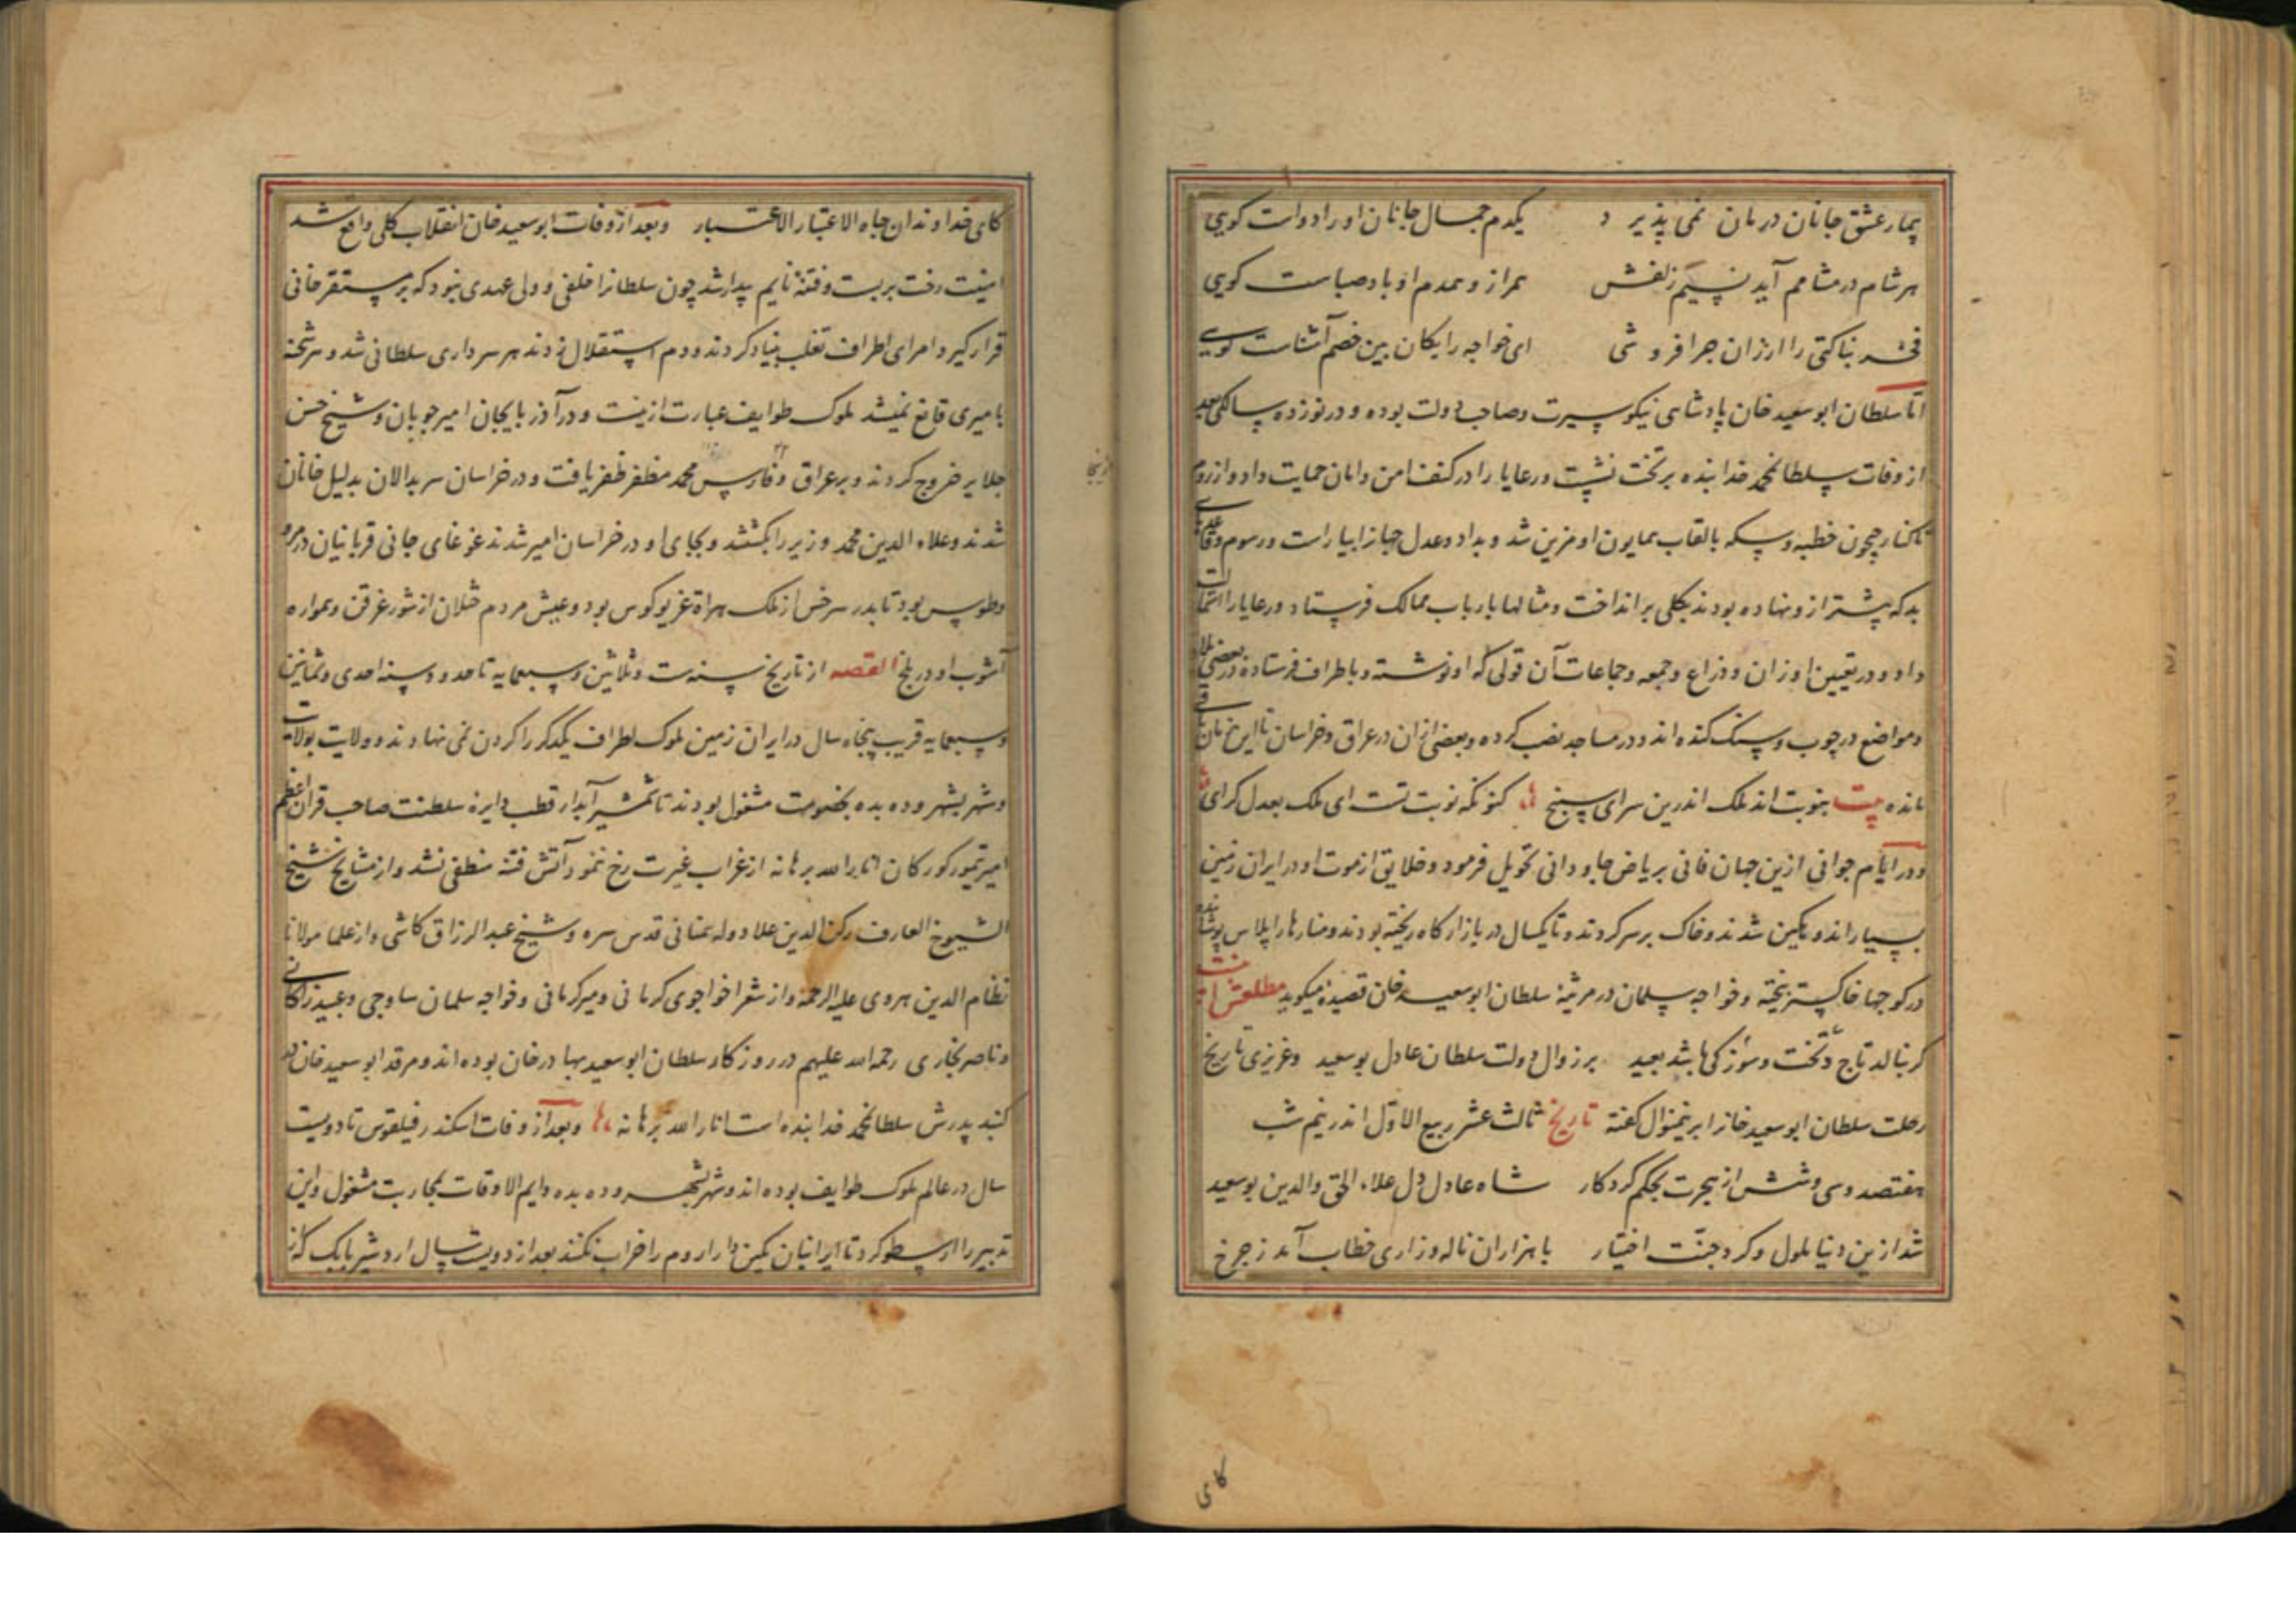 بیمار عشق جانان درمان نمی پذیرد یکدم جمال جانان او را دواست کویی
هر شام در مشامم آید نسیم زلفش همراز و همدم او باد صباست کویی
فخر بناکتی را ارزان چرا فروشی ای خواجه رایکان بین خصم آشناست کویی
اما سلطان ابوسعید خان پادشاهی نیکو سیرت و صاحب دولت بوده و در نوزده سالکی بعد
از وفات سلطان محمد خدابنده بر تخت نشست و رعایا را در کنف امن و امان حمایت داد و از روم
تا کنار جیحون خطبه و سکه بالقاب همایون او مزین شد و بداد و عدل جهانرا بیاراست و رسوم و
بد که پیشتر ازو نهاده بودند بکلی برانداخت و مثالها بارباب ممالک فرستاد و رعایا را استمالت
داد و در تعیین اوزان و ذراع و جمعه و جماعات آن قولی که او نوشته و باطراف فرستاده در بعضی بلاد
و مواضع در چوب و سنک کنده اند و در مساجد نصب کرده و بعضی ازان در عراق و خراسان تا این زمان
مانده بیت بنوبت اند ملک اندرین سرای سپنج کنونکه نوبت تست ای ملک بعدل کرای
و در ایام جوانی ازین جهان فانی بریاض جاودانی تحویل فرمود و خلایق از موت او در ایران زمین
بسیار اندوهکین شدند و خاک بر سر کردند و تا یکسال در بازار کاه ریخته بودند و منارها را پلاس پوشانده
در کوچها خاکستر ریخته و خواجه سلمان در مرثیه سلطان ابوسعید خان قصیده میکوید مطلعش اینست
کر بنالد تاج و تخت و سوزکی باشد بعید بر زوال دولت سلطان عادل بوسعید و عزیزی تاریخ
رحلت سلطان ابوسعید خانرا برینمنوال کفته تاریخ ثالث عشر ربیع الاول اندر نیم شب
هفتصد و سی و شش از هجرت بحکم کردکار شاه عادل دل علاء الحق والدین بوسعید
شد ازین دنیا ملول و کرد جنت اختیار با هزاران ناله و زاری خطاب آمد ز چرخ
کای
کای خداوندان جاه الاعتبار الاعتبار و بعد از وفات ابوسعید خان انقلاب کلی واقع شد
امنیت رخت بربست و فتنه نایم بیدار شد چون سلطانرا خلفی و ولی عهدی نبود که بر مستقر خانی
قرار کیرد امرای اطراف تغلب بنیاد کردند و دم استقلال زدند هر سرداری سلطانی شد و هر شحنه
بامیری قانع نمیشد ملوک طوایف عبارت ازینست و در آذربایجان امیر چوبان و شیخ حسن
جلایر خروج کردند و بر عراق و فارس محمد مظفر ظفر یافت و در خراسان سربدالان بدلیل خانان
شدند و علاء الدین محمد وزیر را بکشتند و بجای او در خراسان امیر شدند غوغای جانی قربانیان در مرو
و طوس بود تا بدر سرخس از ملک هراة غریو کوس بود و عیش مردم ختلان از شور غرقن و همواره
آشوب او در بلخ القصه از تاریخ سنه ست و ثلاثین و سبعمایه تا حدود سنه احدی و ثمانین
و سبعمایه قریب پنجاه سال در ایران زمین ملوک اطراف یکدکر را کردن نمی نهادند و ولایت بولایت
و شهر بشهر و ده بده بخصومت مشغول بودند تا شمشیر آبدار قطب دایره سلطنت صاحب قران اعظم
امیر تیمور کورکان انار الله برهانه از غراب غیرت رخ ننمود آتش فتنه منطفی نشد و از مشایخ شیخ
الشیوخ العارف رکن الدین علا دوله سمنانی قدس سره و شیخ عبد الرزاق کاشی و از علما مولانا
نظام الدین هروی علیه الرحمة و از شعرا خواجوی کرمانی و میر کرمانی و خواجه سلمان ساوجی و عبید زاکانی
و ناصر بخاری رحمه الله علیهم در روزکار سلطان ابوسعید بهادر خان بوده اند و مرقد ابوسعید خان در
کنبد پدرش سلطان محمد خدابنده است انار الله برهانه و بعد از وفات اسکندر فیلقوس تا دویست
سال در عالم ملوک طوایف بوده اند و شهر بشهر و ده بده دایم الاوقات بمحاربت مشغول و این
تدبیر را ارسطو کرد تا ایرانیان بکین دارا روم را خراب نکنند بعد از دویست سال اردشیر بابک که از